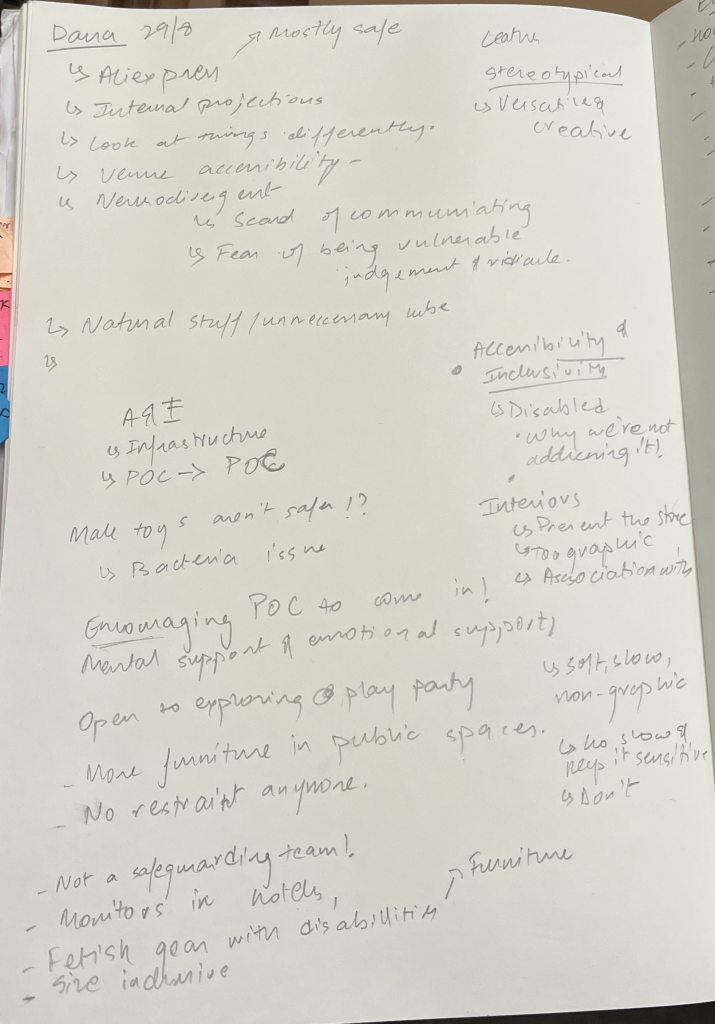 Dana 29/8
↗ Mostly safe
↳ Aliexpress
↳ Internal projections
↳ Look at things differently.
↳ Venue accessibility -
↳ Neurodivergent
↳ Scared of communicating
↳ Fear of being vulnerable
judgement & ridicule.
↳ Natural stuff / unneccessary lube
↳
Leather
Stereotypical
↳ Versatile &
creative
A & I
↳ Infrastructure
↳ POC → POC
• Accessibility &
Inclusivity
↳ Disabled
• Why we're not
addressing it!
•
Male toys aren't safer!?
↳ Bacteria issue
Interiors
↳ Present the store
↳ Too graphic
↳ Association with
Encouraging POC to come in!
Mental support & emotional support,
Open to exploring @ play party
- More furniture in public spaces.
- No restraint anymore.
↳ soft, slow,
non-graphic
↳ Go slow &
keep it sensitive
↳ Don't
- Not a safeguarding team!
- Monitors in hotels,
- Fetish gear with disabillities
↗ Furniture
- Size inclusive